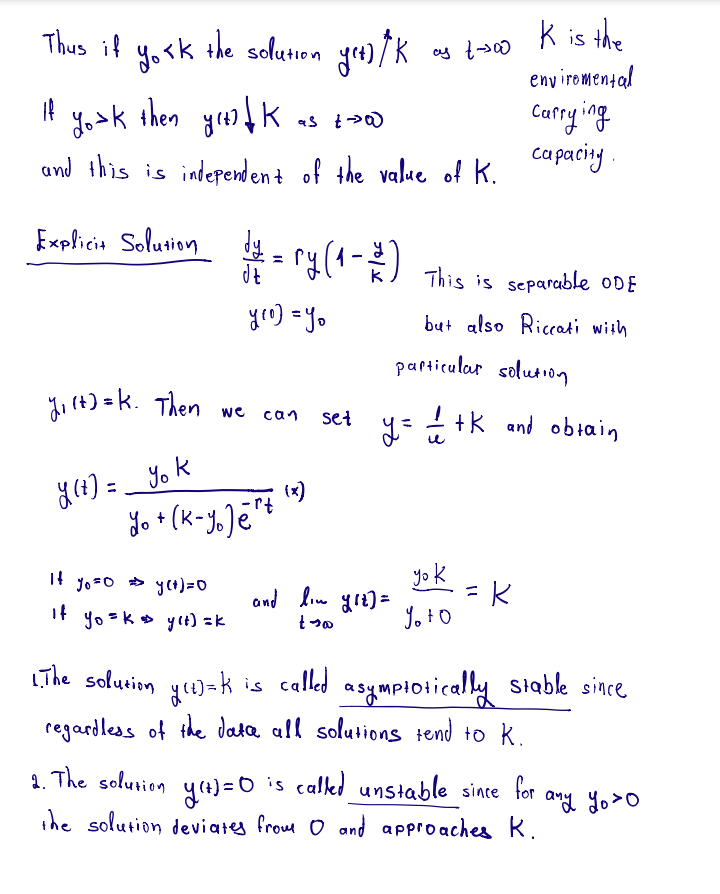 Thus if y₀<K the solution y(t)↗K as t→∞
K is the
enviromental
carrying
capacity.
If y₀>K then y(t)↓K as t→∞
and this is independent of the value of K.
Explicit Solution
dy/dt = ry(1-y/K)
y(0)=y₀
This is separable ODE
but also Riccati with
particular solution
y₁(t)=K. Then we can set y= 1/u +K and obtain
y(t)= y₀K / (y₀+(K-y₀)e^(-rt)) (*)
If y₀=0 ⇒ y(t)=0
If y₀=K ⇒ y(t)=K
and lim t→∞ y(t)= y₀K / (y₀+0) = K
1.The solution y(t)=K is called asymptotically stable since
regardless of the data all solutions tend to K.
2. The solution y(t)=0 is called unstable since for any y₀>0
the solution deviates from 0 and approaches K.